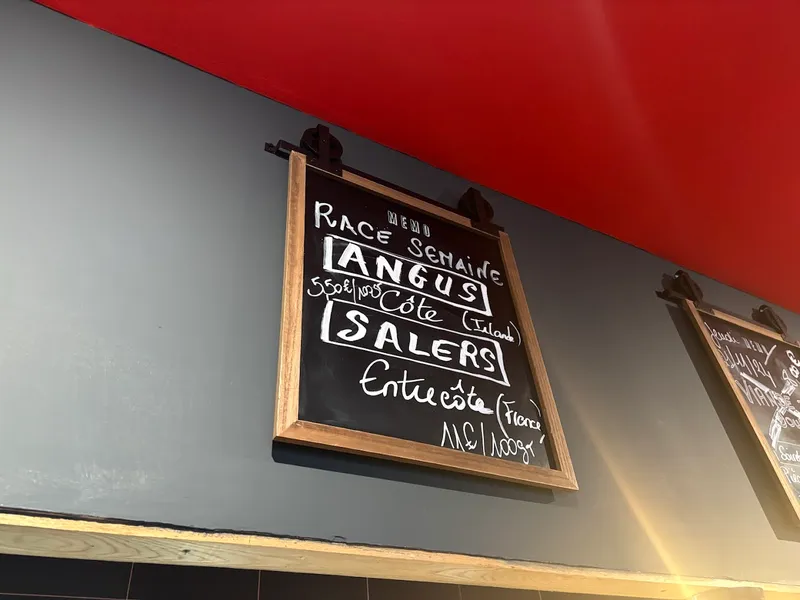 MEMO
RACE SEMAINE
ANGUS
5,50€/100g Côte (Irlande)
SALERS
Entrecôte (France)
11€/100gr
Jeudi MENU